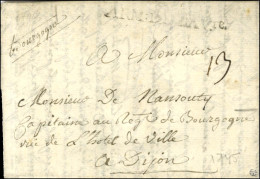 Bourgogne
A Monsieur
13
Monsieur De Nansouty
Capitaine au Reg.t de Bourgogne
rue de L'hotel de ville
a Dijon